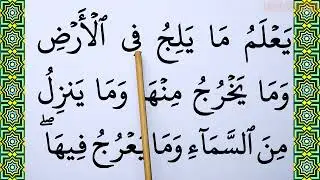 يَعْلَمُ مَا يَلِجُ فِي ٱلْأَرْضِ
وَمَا يَخْرُجُ مِنْهَا وَمَا يَنزِلُ
مِنَ ٱلسَّمَآءِ وَمَا يَعْرُجُ فِيهَا ۖ